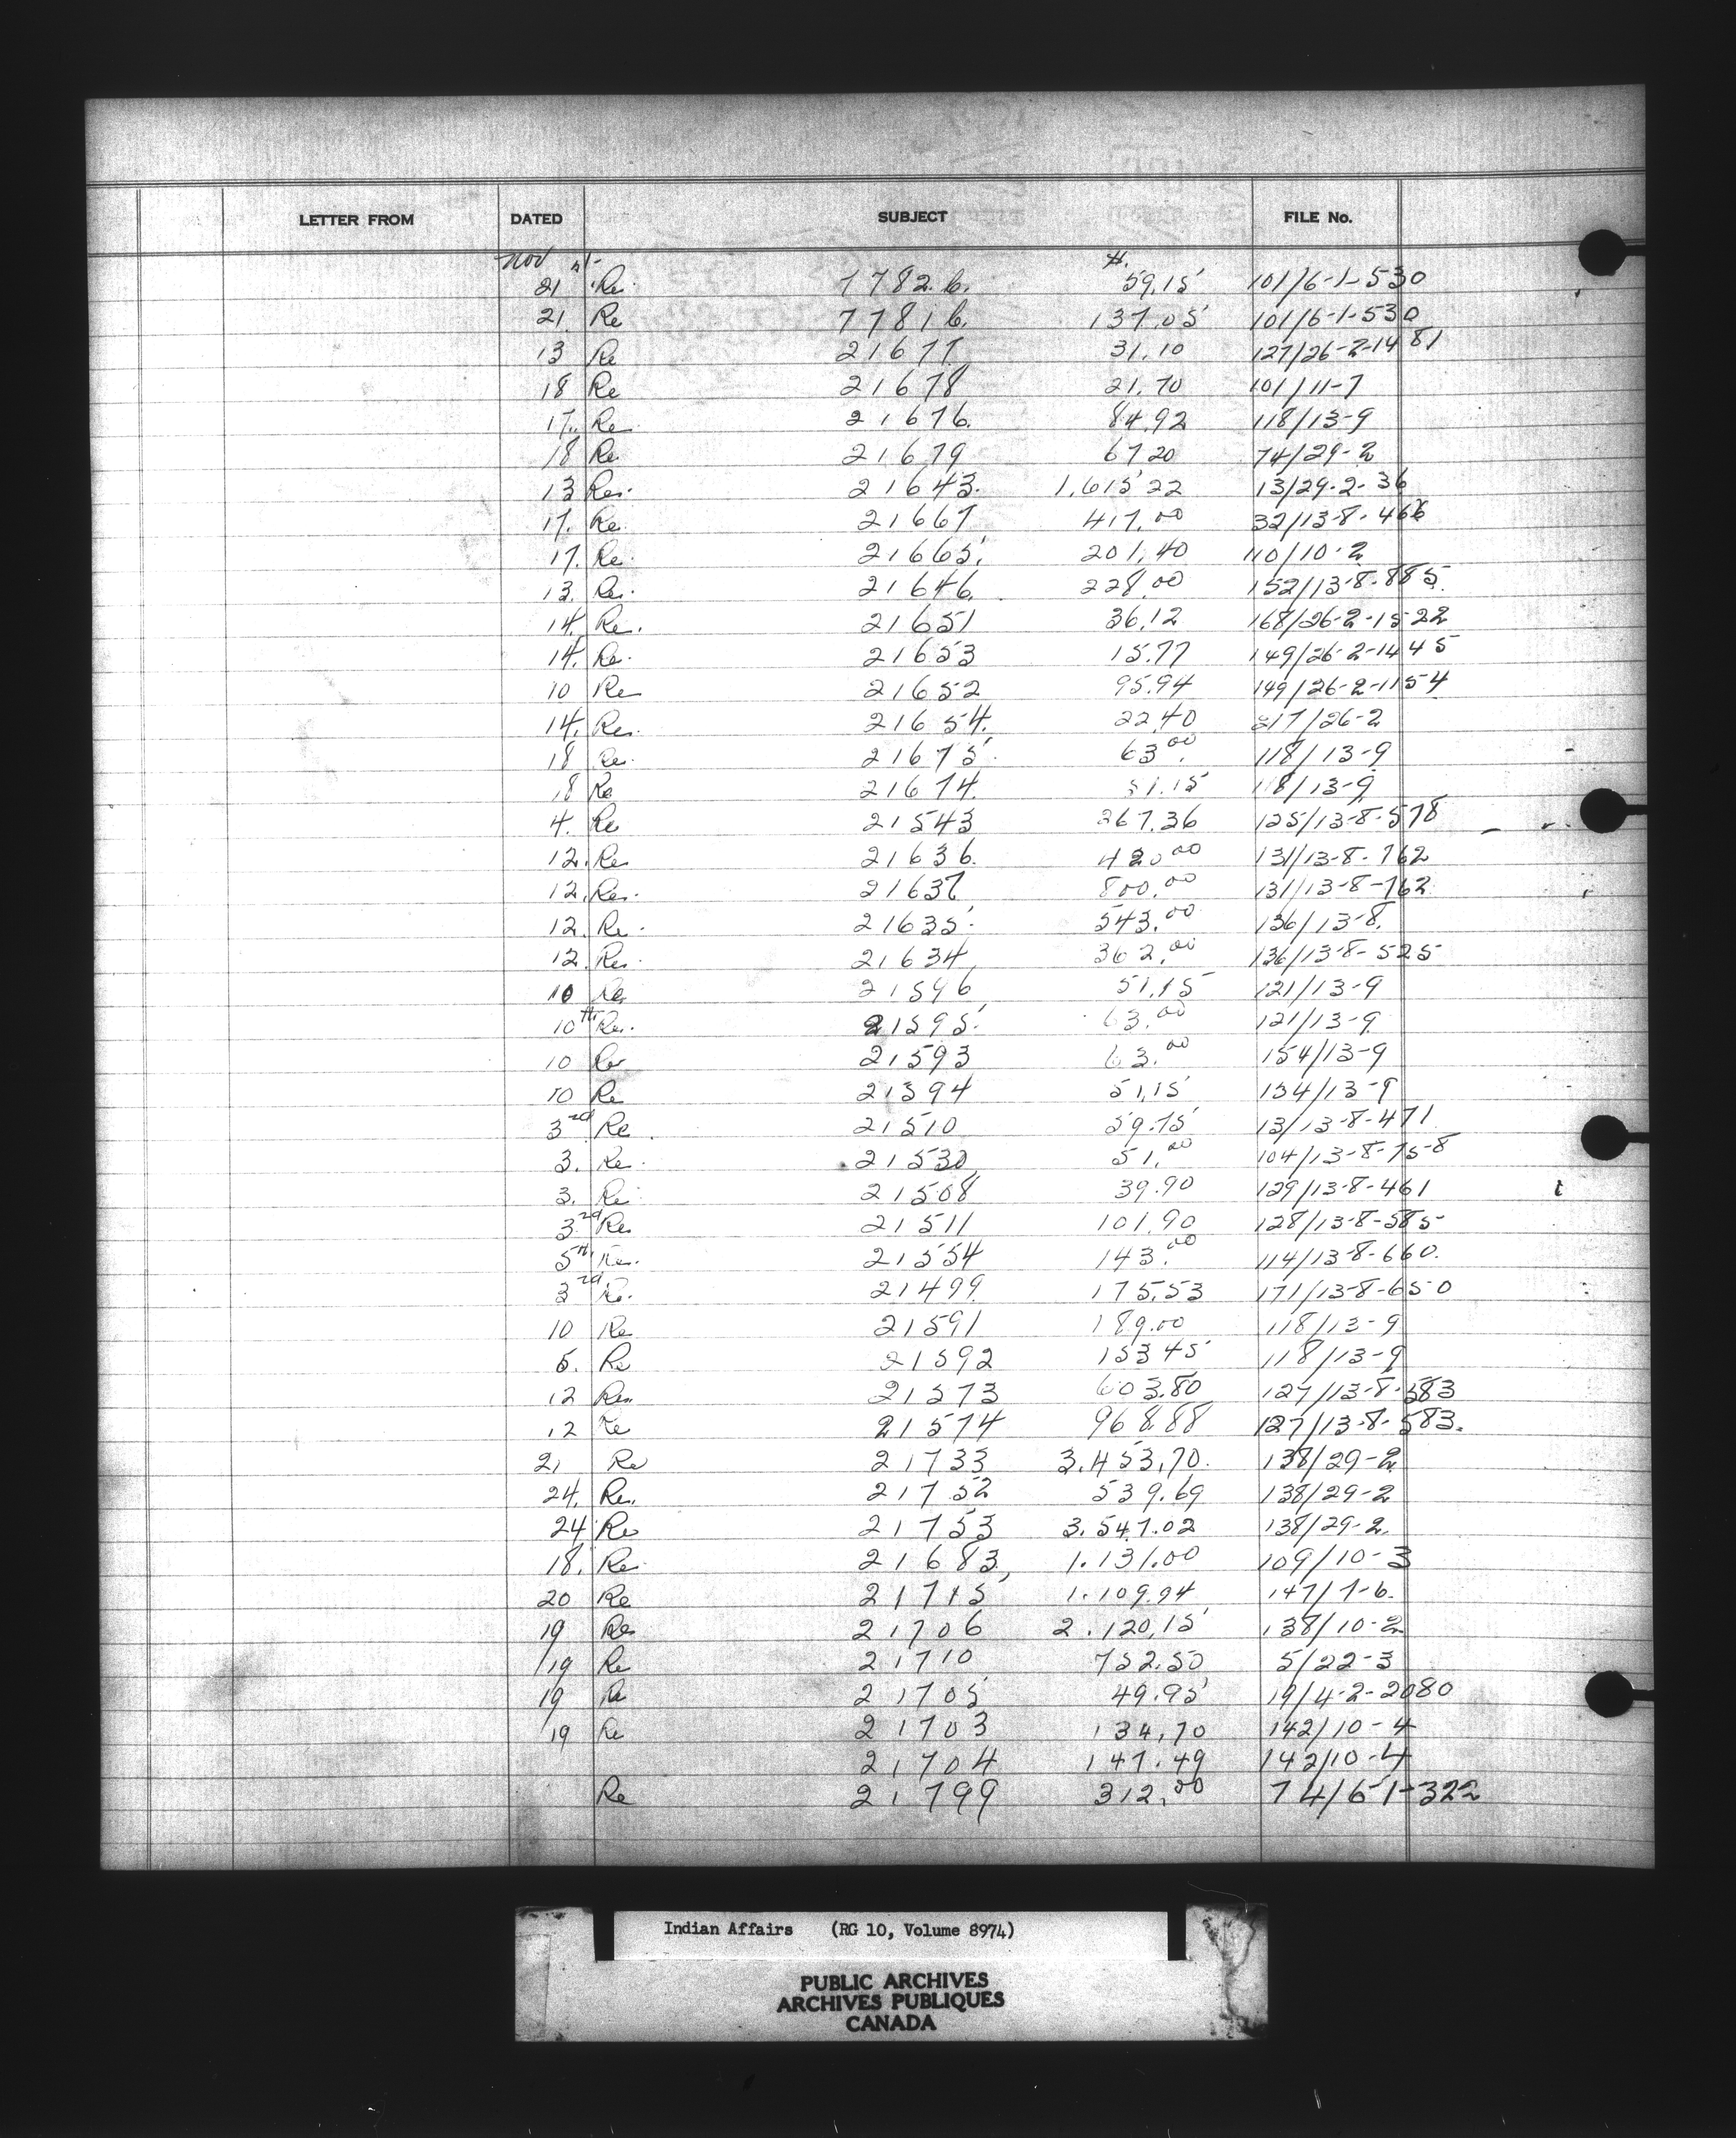 LETTER FROM DATED SUBJECT FILE No.
Nov
21 Re 7782 b. 59.15 101/6-1-530
21 Re 7781 b. 137.05 101/6-1-530
13 Re 21677 31.10 127/26-2-1481
18 Re 21678 21.70 101/11-7
17. Re 21676. 84.92 118/13-9
18 Re 21679 67.20 74/29-2
13 Re. 21643. 1,615.22 13/29-2-36
17. Re 21667 417.00 32/13-8-466
17. Re. 21665. 201.40 110/10-2
13. Re. 21646. 228.00 152/13-8-885.
14. Re. 21651 36.12 168/26-2-1522
14. Re. 21653 15.77 149/26-2-1445
10 Re 21652 95.94 149/26-2-1154
14. Re. 21654. 22.40 217/26-2
18 Re. 21675. 63.00 118/13-9
18 Re 21674. 51.15 118/13-9
4. Re 21543 267.36 125/13-8-578
12. Re 21636. 420.00 131/13-8-762
12. Re. 21637 800.00 131/13-8-762.
12. Re. 21635. 543.00 136/13-8.
12. Re. 21634 362.00 136/13-8-525
10 Re 21596 51.15 121/13-9
10th Re. 21595. 63.00 121/13-9
10 Re 21593 63.00 154/13-9
10 Re 21594 51.15 154/13-9
3rd Re 21510 59.75 13/13-8-471
3. Re. 21530 51.00 104/13-8-758
3. Re 21508 39.90 129/13-8-461
3rd Re 21511 101.90 128/13-8-585
5th Re. 21554 143.00 114/13-8-660.
3rd Re. 21499 175.53 171/13-8-650
10 Re 21591 189.00 118/13-9
5. Re 21592 153.45 118/13-9
12 Re 21573 603.80 127/13-8-583
12 Re 21574 968.88 127/13-8-583.
21 Re 21733 3,453.70. 138/29-2
24. Re. 21752 539.69 138/29-2
24 Re 21753 3.547.02 138/29-2.
18. Re. 21683, 1.131.00 109/10-3
20 Re 21715 1.109.94 147/7-6.
19 Re 21706 2.120.15 138/10-2
19 Re 21710 752.50 5/22-3
19 Re 21705 49.95 19/4-2-2080
19 Re 21703 134.70 142/10-4
21704 147.49 142/10-4
Re 21799 312.00 74/6-1-322
Indian Affairs (RG 10, Volume 8974)
PUBLIC ARCHIVES
ARCHIVES PUBLIQUES
CANADA